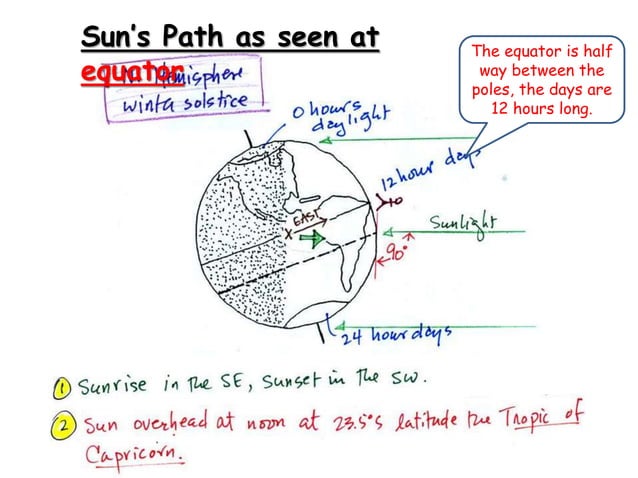 Sun's Path as seen at
equator
Hemisphere
winter solstice
The equator is half
way between the
poles, the days are
12 hours long.
0 hours
daylight
12 hour days
EAST
X
Sunlight
90°
24 hour days
1 Sunrise in the SE, Sunset in the SW.
2 Sun overhead at noon at 23.5°S latitude the Tropic of
Capricorn.